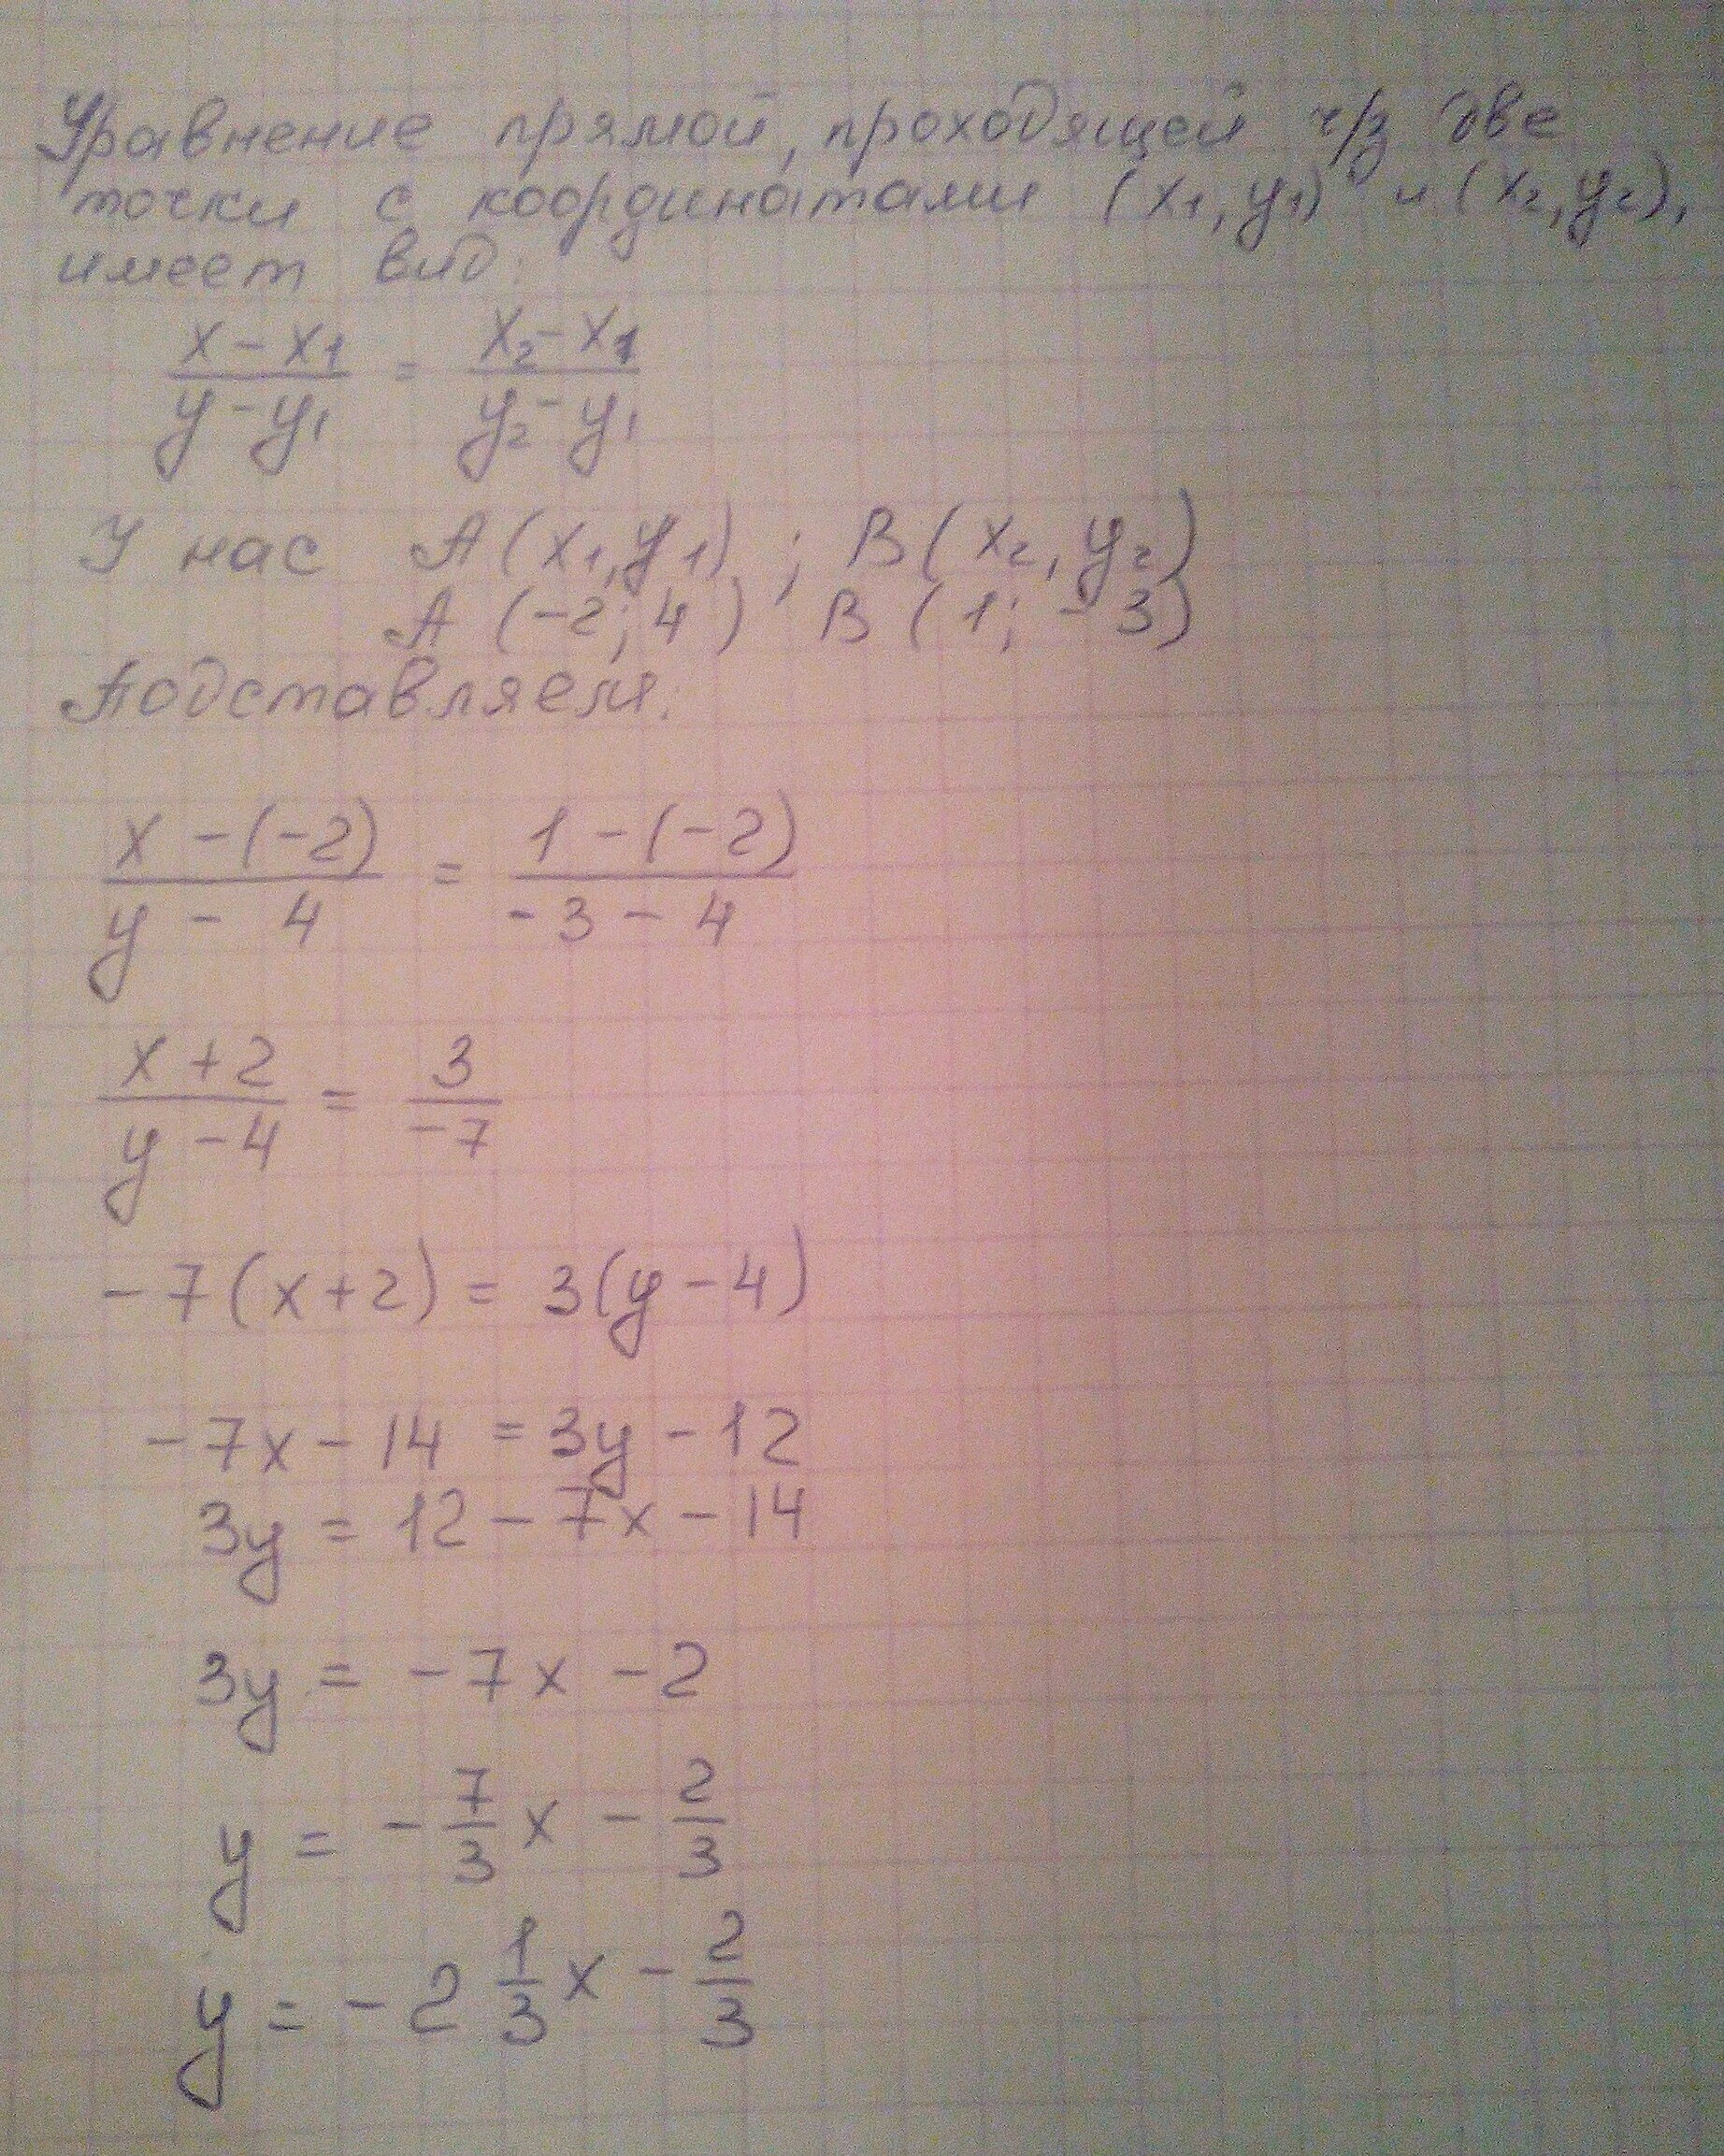 Уравнение прямой, проходящей ч/з две
точки с координатами (x₁, y₁) и (x₂, y₂),
имеет вид:
(x - x₁)/(y - y₁) = (x₂ - x₁)/(y₂ - y₁)
У нас A(x₁, y₁) ; B(x₂, y₂)
A (-2; 4) B (1; -3)
Подставляем:
(x - (-2))/(y - 4) = (1 - (-2))/(-3 - 4)
(x + 2)/(y - 4) = 3/(-7)
-7(x+2) = 3(y-4)
-7x - 14 = 3y - 12
3y = 12 - 7x - 14
3y = -7x - 2
y = -7/3 x - 2/3
y = -2 1/3 x - 2/3